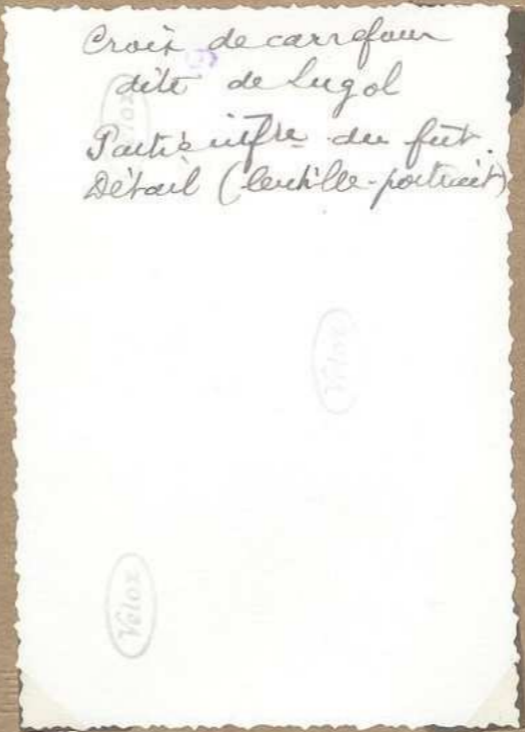 Croix de carrefour
dite de Lugol
Partie infre du fût.
Détail (lentille-portrait)
Velox
Velox
Velox